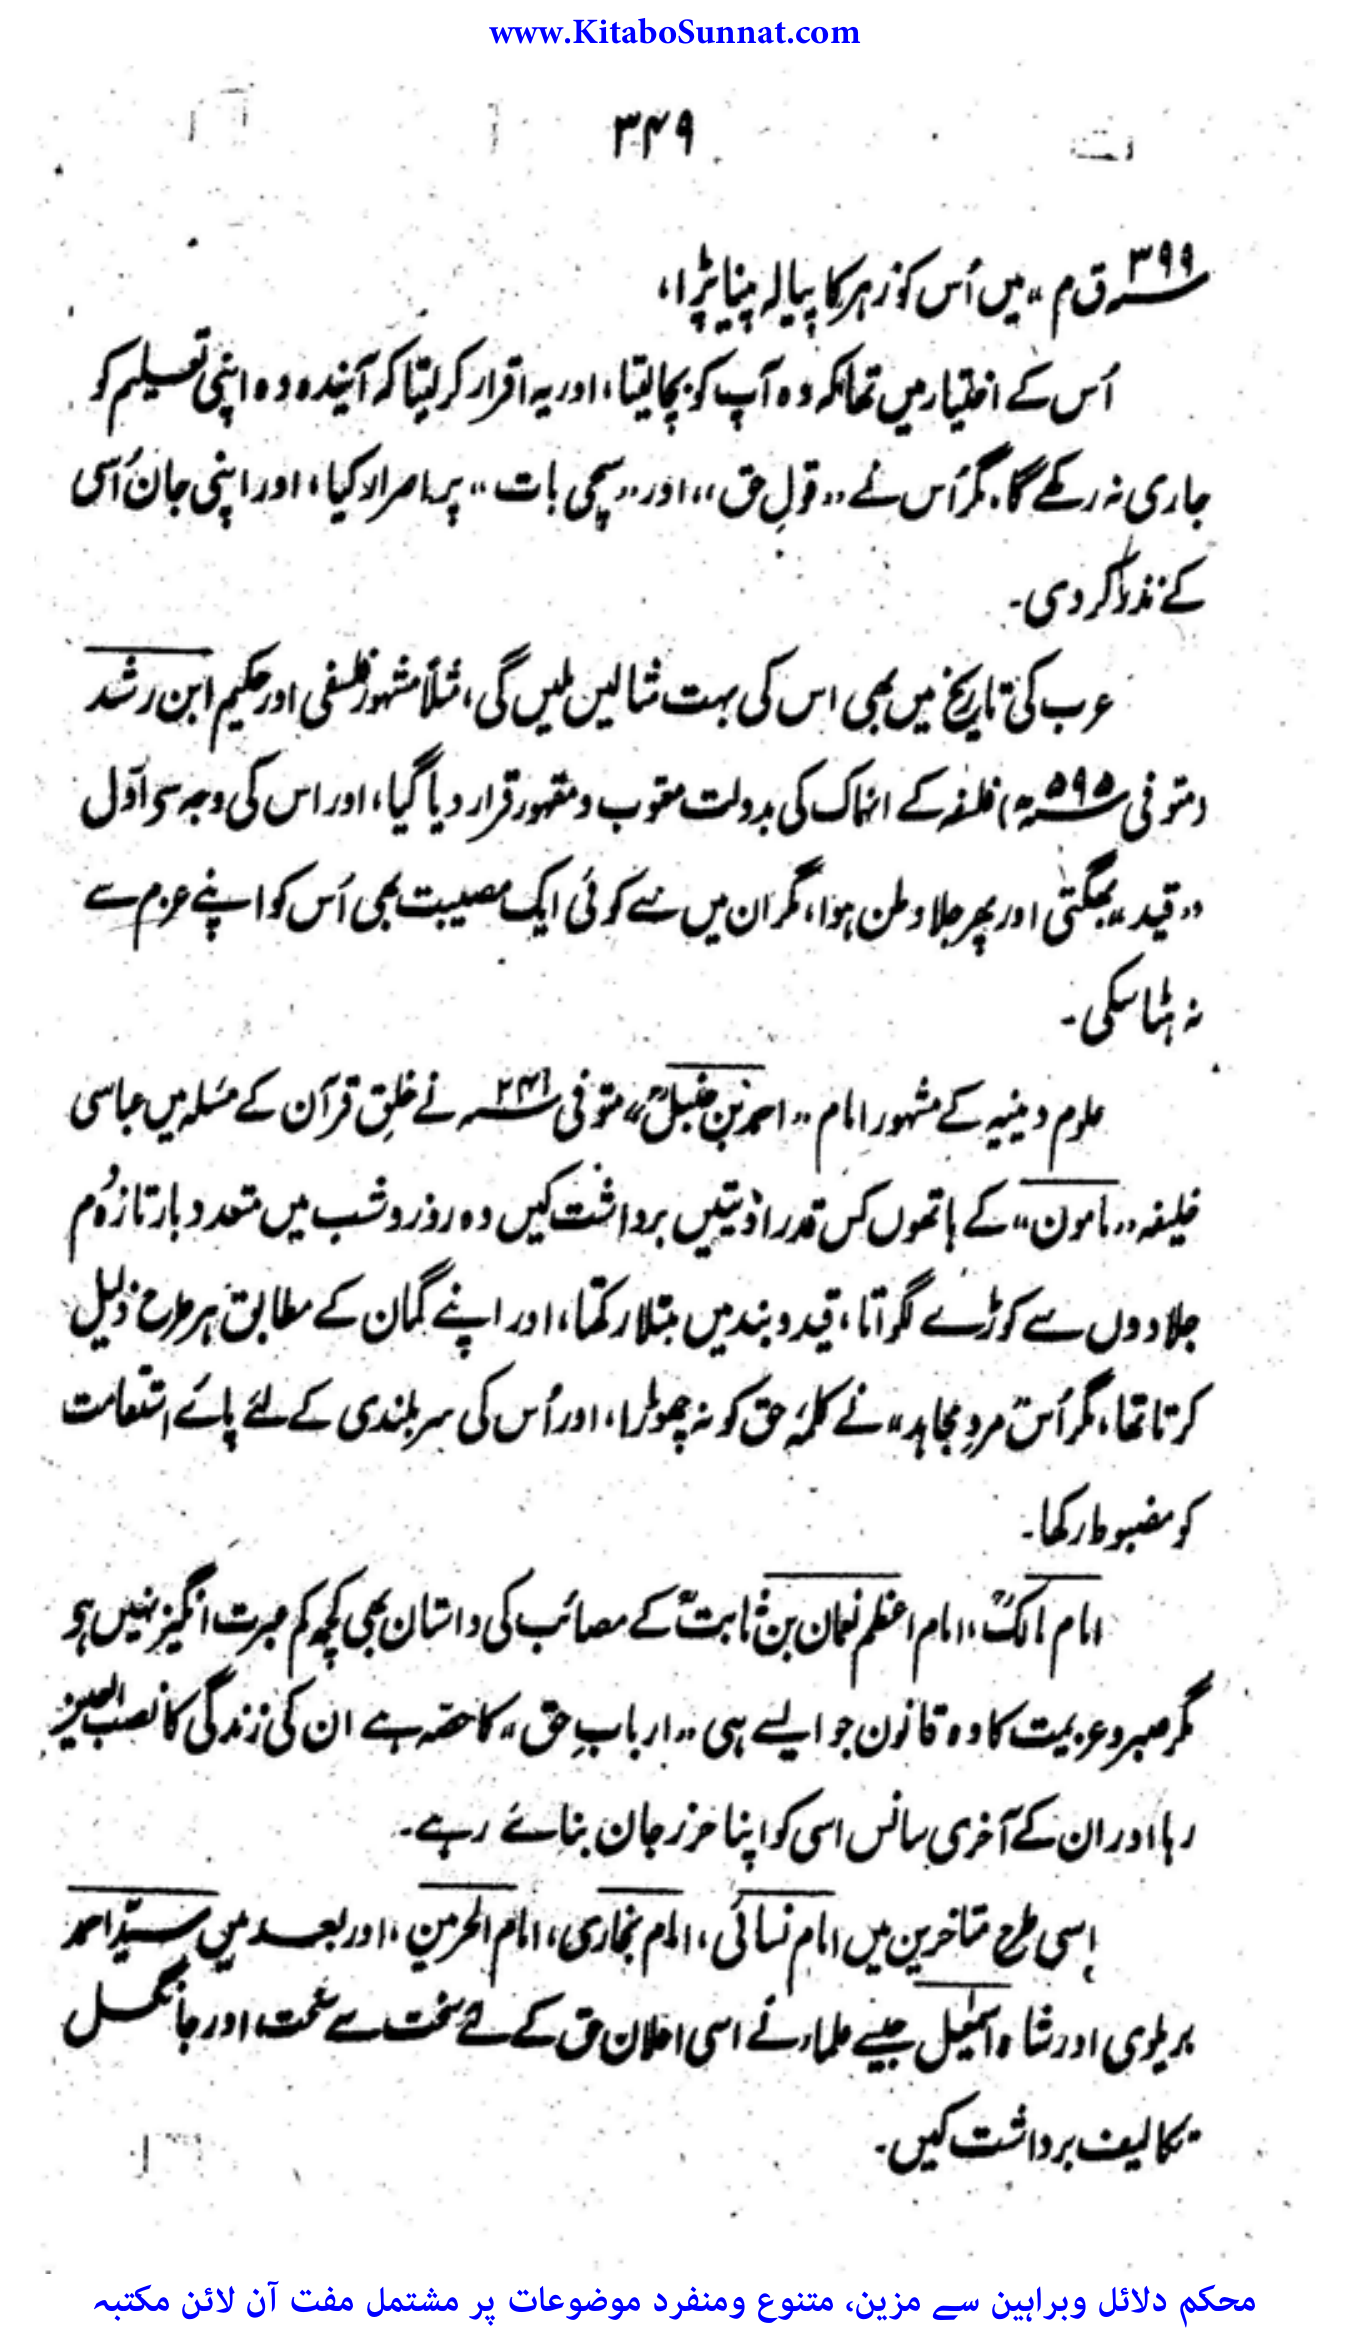 www.KitaboSunnat.com
۳۴۹
۳۹۹؁ ق م“ میں اُس کو زہر کا پیالہ پینا پڑا،
اُس کے اختیار میں تھا کہ وہ آپ کو بچا لیتا، اور یہ اقرار کر لیتا کہ آیندہ وہ اپنی تعلیم کو
جاری نہ رکھے گا، مگر اُس نے ”قولِ حق“، اور ”سچی بات“ پر اصرار کیا، اور اپنی جان اُسی
کے نذر کر دی۔
عرب کی تاریخ میں بھی اس کی بہت مثالیں ملیں گی، مثلاً مشہور فلسفی اور حکیم ابن رشد
(متوفی ۵۹۵؁ھ) فلسفہ کے انہماک کی بدولت معتوب و مقہور قرار دیا گیا، اور اس کی وجہ سے اوّل
”قید“ بھگتی اور پھر جلا وطن ہوا، مگر ان میں سے کوئی ایک مصیبت بھی اُس کو اپنے عزم سے
نہ ہٹا سکی۔
علوم دینیہ کے مشہور امام ”احمد بن حنبلؒ“ متوفی ۲۴۱؁ھ نے خلقِ قرآن کے مسئلہ میں عباسی
خلیفہ ”مامون“ کے ہاتھوں کس قدر اذیتیں برداشت کیں وہ روز و شب میں متعدد بار تازہ دم
جلادوں سے کوڑے لگواتا، قید و بند میں مبتلا رکھتا، اور اپنے گمان کے مطابق ہر طرح ذلیل
کرتا تھا، مگر اُس ”مردِ مجاہد“ نے کلمۂ حق کو نہ چھوڑا، اور اُس کی سربلندی کے لئے پائے استقامت
کو مضبوط رکھا۔
امام مالکؒ، امام اعظم نعمان بن ثابتؒ کے مصائب کی داستان بھی کچھ کم عبرت انگیز نہیں ہو
مگر صبر و عزیمت کا وہ قانون جو ایسے ہی ”اربابِ حق“ کا حصّہ ہے ان کی زندگی کا نصب العین
رہا اور ان کے آخری سانس اسی کو اپنا حرز جان بنائے رہے۔
اِسی طرح متاخرین میں امام نسائی، امام بخاری، امام الحرمین، اور بعد میں سیّد احمد
بریلوی اور شاہ اسمٰعیل جیسے علماء نے اسی اعلان حق کے لئے سخت سے سخت اور جانگسل
تکالیف برداشت کیں۔
محکم دلائل وبراہین سے مزین، متنوع ومنفرد موضوعات پر مشتمل مفت آن لائن مکتبہ